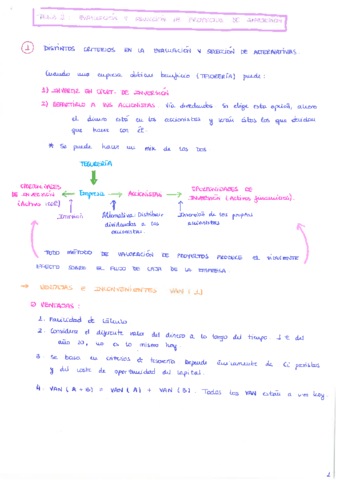 TEMA 2: EVALUACIÓN Y SELECCIÓN DE PROYECTOS DE INVERSIÓN
1 DISTINTOS CRITERIOS EN LA EVALUACIÓN Y SELECCIÓN DE ALTERNATIVAS.
Cuando una empresa obtiene beneficio (TESORERÍA) puede:
1) INVERTIR EN OPORT. DE INVERSIÓN
2) REPARTIRLO A SUS ACCIONISTAS. Vía dividendos. Si elige esta opción, ahora
el dinero está en los accionistas y serán ellos los que decidan
que hacer con él.
* Se puede hacer un MIX de las dos
TESORERÍA
OPORTUNIDADES DE INVERSIÓN (Activos reales) ← Empresa → ACCIONISTAS → OPORTUNIDADES DE INVERSIÓN (Activos financieros).
Inversión
Alternativa: Distribuir dividendos a los accionistas.
Inversión de los propios accionistas
TODO MÉTODO DE VALORACIÓN DE PROYECTOS PRODUCE EL SIGUIENTE
EFECTO SOBRE EL FLUJO DE CAJA DE LA EMPRESA
→ VENTAJAS E INCONVENIENTES VAN (1)
1) VENTAJAS:
1. Facilidad de cálculo
2. Considera el diferente valor del dinero a lo largo del tiempo. 1 € del
año 10, no es lo mismo hoy
3. Se basa en criterios de tesorería. Depende únicamente de previstos
y del coste de oportunidad del capital.
4. VAN (A + B) = VAN (A) + VAN (B). Todos los VAN están a hoy.